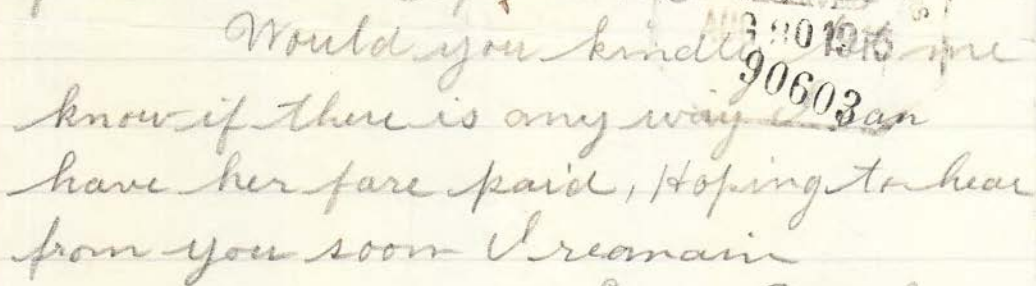 Would you kindly let me
know if there is any way I can
have her fare paid, Hoping to hear
from you soon I reamain
90603